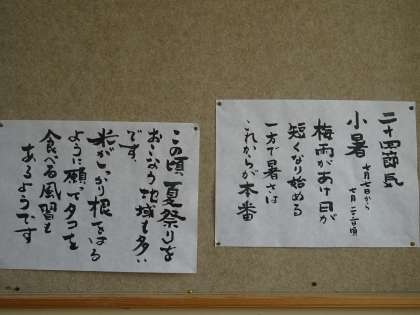 二十四節気
小暑
七月七日から
七月二二日頃
梅雨があけ日が
短くなり始める
一方で暑さは
これからが本番
この頃、夏祭りを
おこなう地域も多い
です。
稲がしっかり根をはる
ように願ってタコを
食べる風習も
あるようです